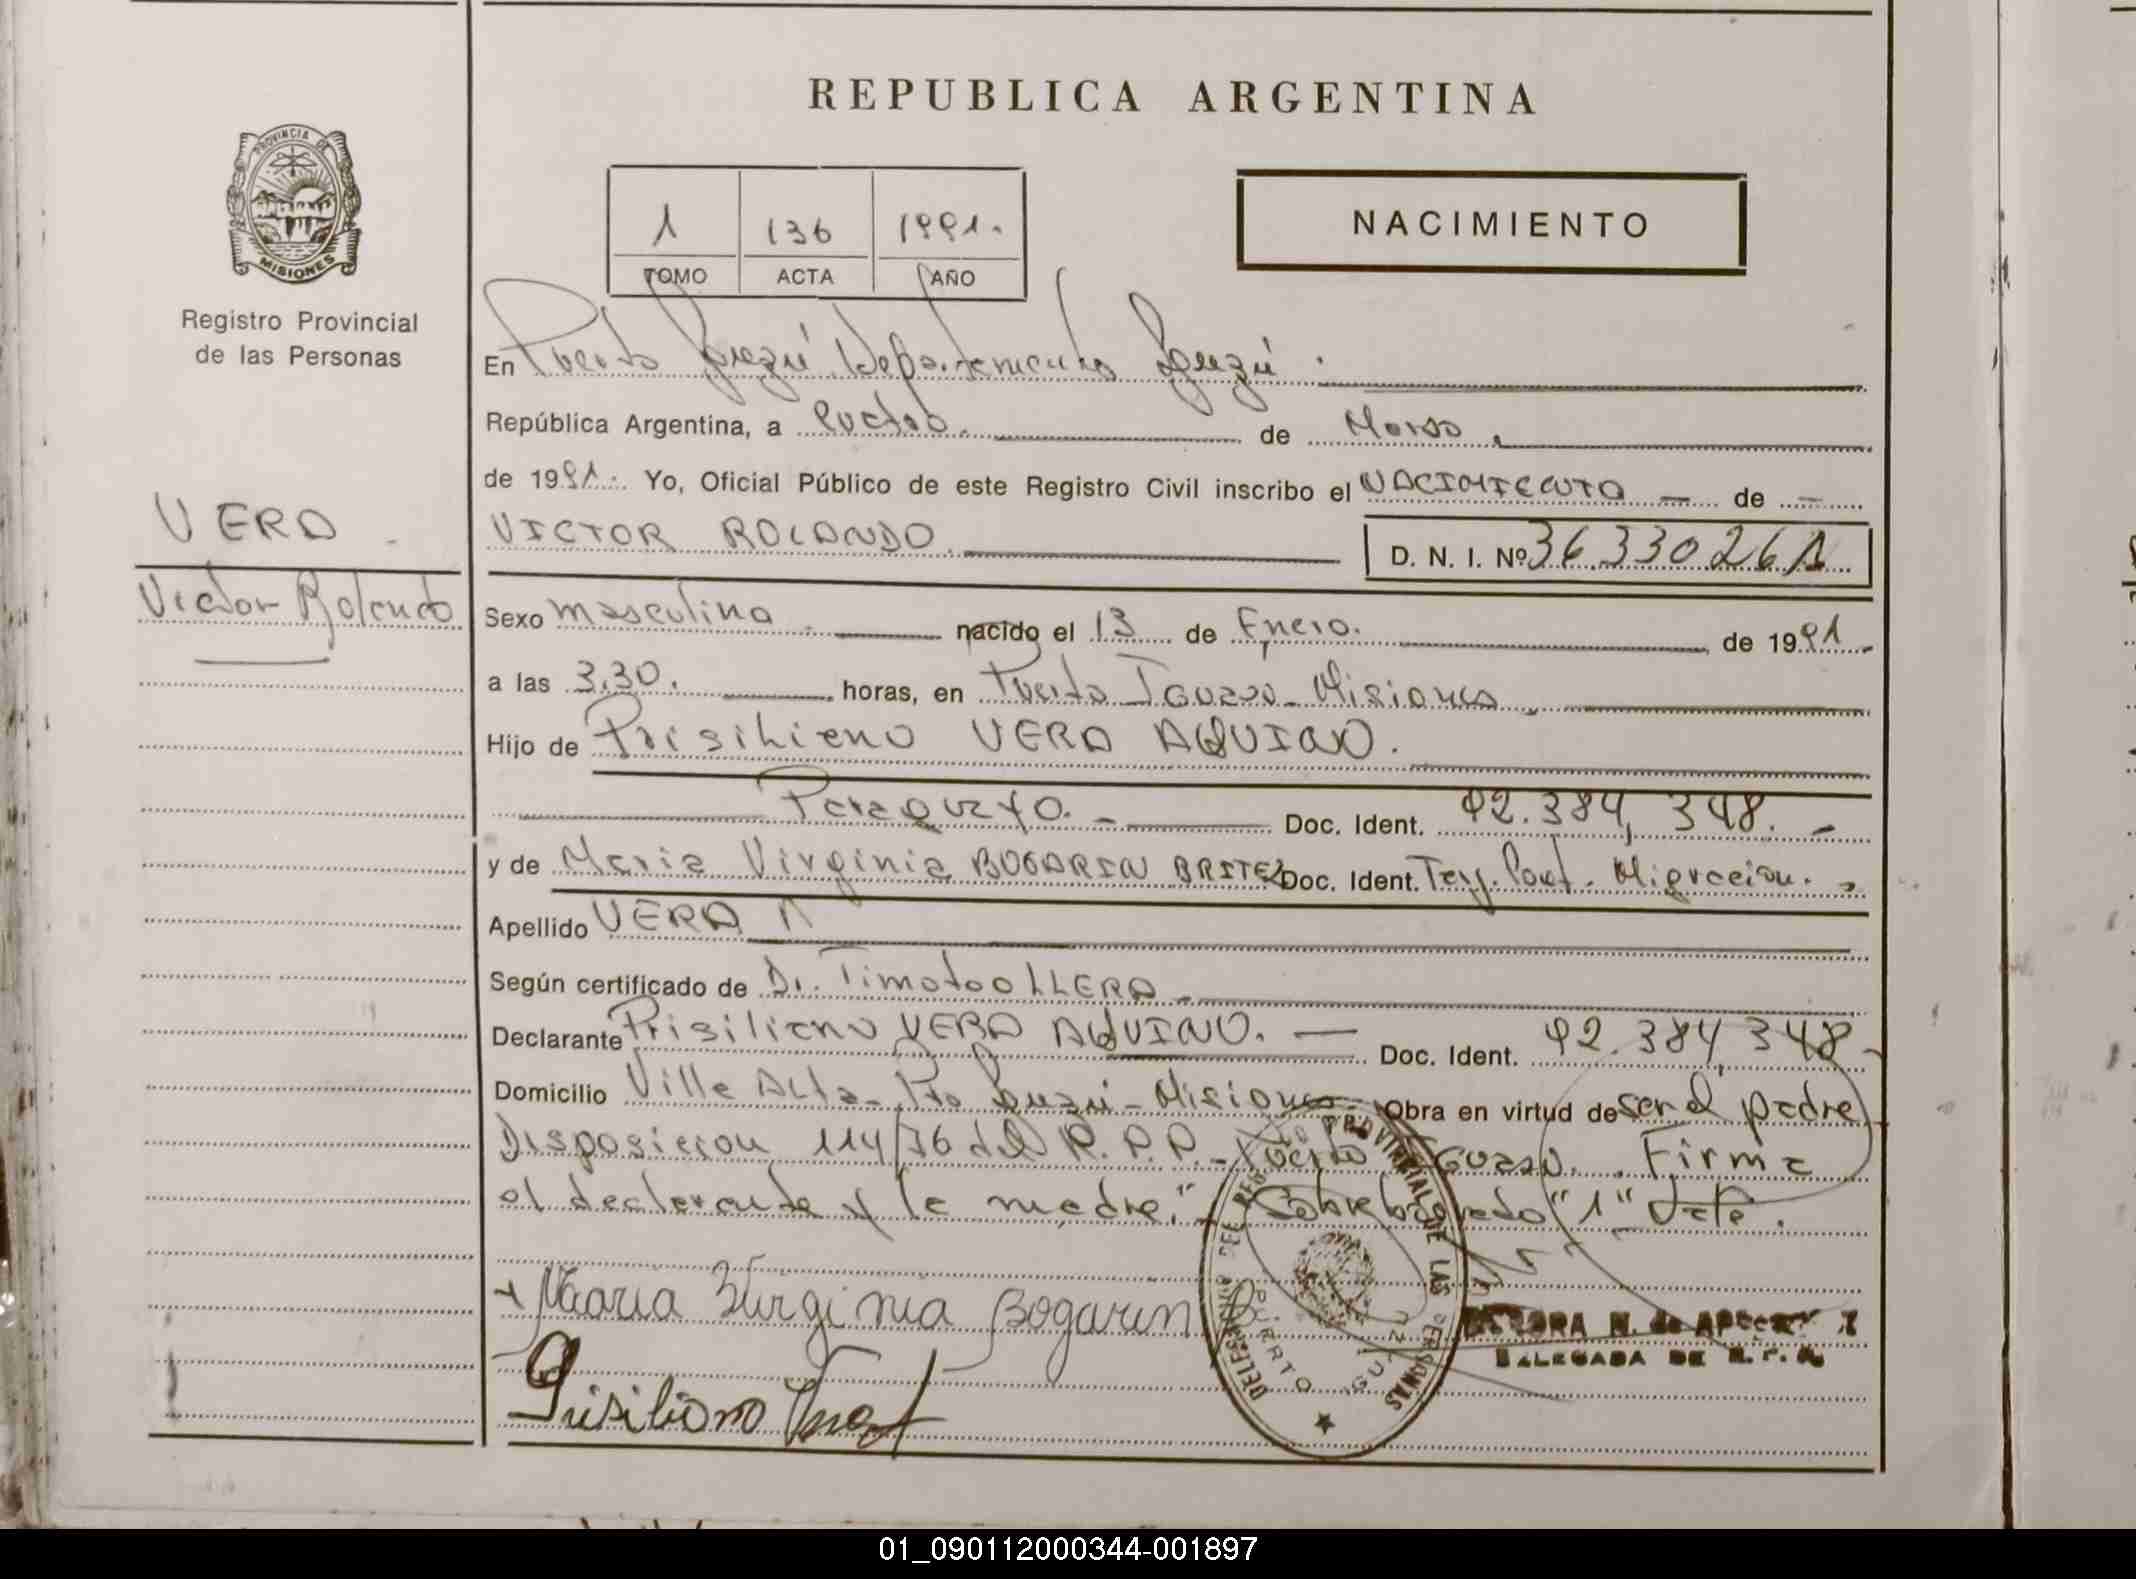 REPUBLICA ARGENTINA
PROVINCIA DE
MISIONES
Registro Provincial
de las Personas
1 136 1991.
TOMO ACTA AÑO
NACIMIENTO
VERA
Victor Rolando
En Puerto Iguazú Departamento Iguazú.
República Argentina, a cuatro. de Marzo.
de 1991. Yo, Oficial Público de este Registro Civil inscribo el NACIMIENTO — de —
VICTOR ROLANDO.
D. N. I. Nº 36.330.261
Sexo masculino nacido el 13 de Enero. de 1991
a las 3.30. horas, en Puerto Iguazu- Misiones
Hijo de Prisiliano VERA AQUINO.
Paraguayo. — Doc. Ident. 92.384.348. —
y de Maria Virginia BOGARIN BRITEZ Doc. Ident. Migracion.
Apellido VERA
Según certificado de Dr. Timoteo LLERA
Declarante Prisiliano VERA AQUINO. — Doc. Ident. 92.384.348-
Domicilio Villa Alta- Pto Iguazú - Misiones Obra en virtud de ser el padre
Disposicion 114/76 del R.P.P. - Puerto Iguazu. Firma
el declarante y la madre." Sobreborrado "1" Vale.
Maria Virginia Bogarin B
Prisiliano Vera
PROVINCIAL DE LAS PERSONAS
PUERTO IGUAZU
N. de
DELEGADA DE R. P. P.
01_090112000344-001897